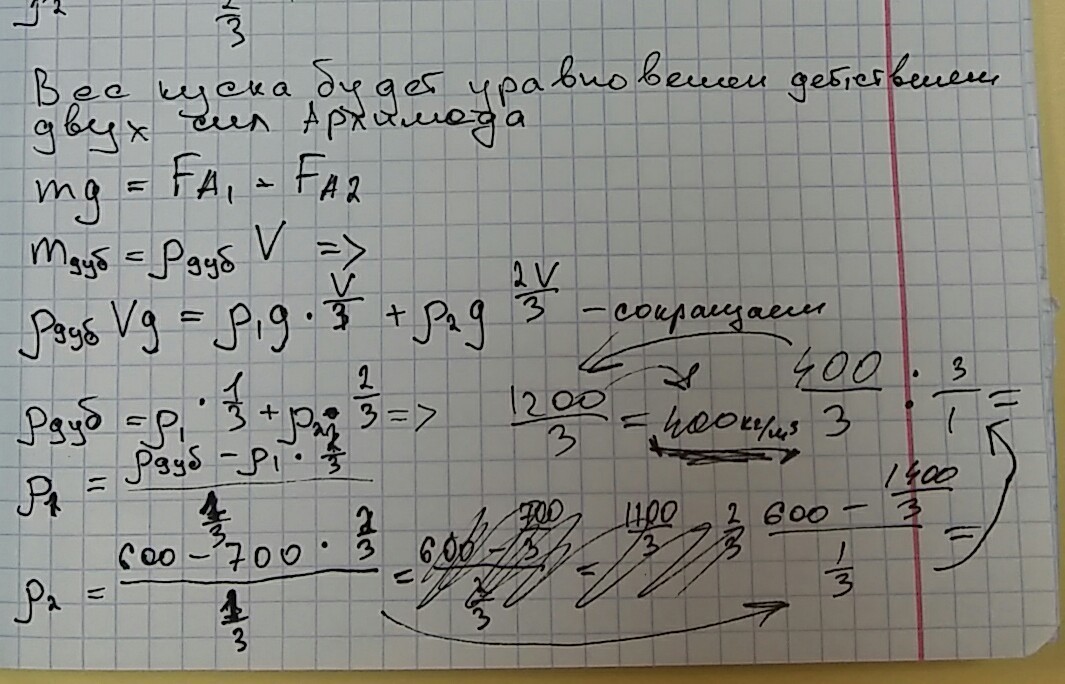 2
3
Вес куска будет уравновешен действием
двух сил Архимеда
mg = FA1 - FA2
mдуб = ρдуб V =>
ρдуб Vg = ρ1g · V/3 + ρ2g 2V/3 - сокращаем
ρдуб = ρ1 · 1/3 + ρ2 · 2/3 => 1200/3 = 400 кг/м³ 400/3 · 3/1 =
ρ1 = (ρдуб - ρ1 · 2/3)/(1/3)
ρ2 = (600 - 700 · 2/3)/(1/3) = (600 - 700/3)/(2/3) = 1100/3 2/3 (600 - 1400/3)/(1/3) =